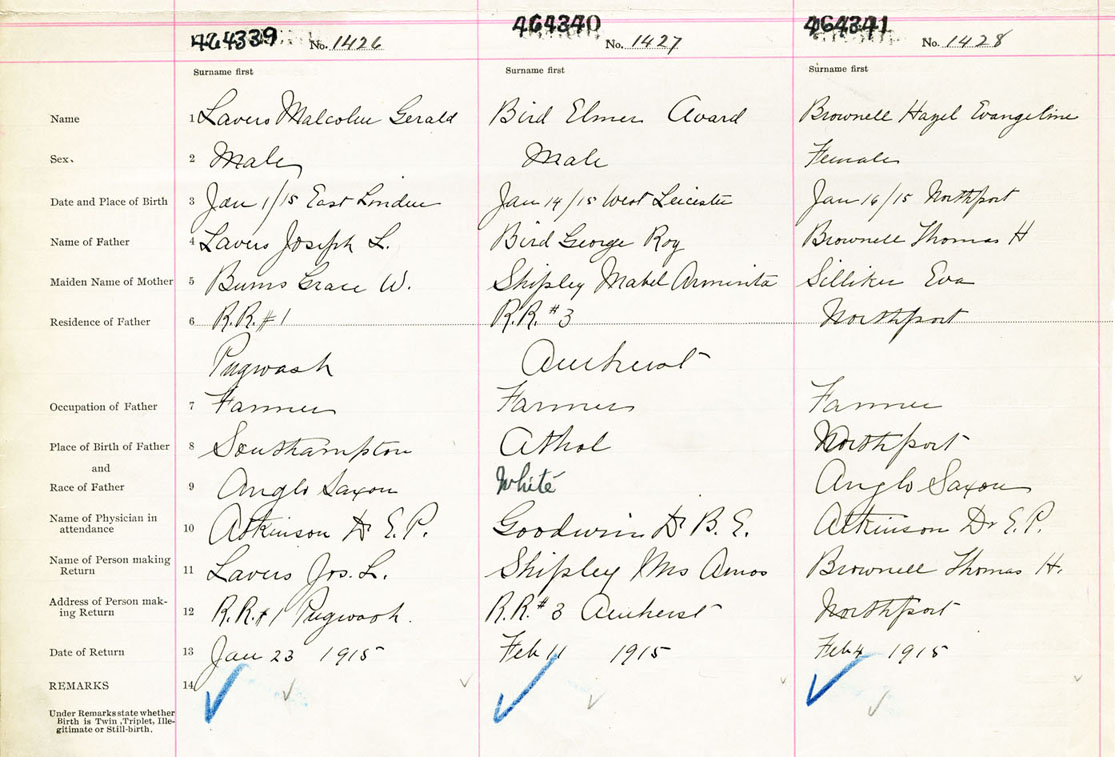 464339 No. 1426 464340 No. 1427 464341 No. 1428
Surname first Surname first Surname first
Name 1 Lavers Malcolm Gerald Bird Elmer Avard Brownell Hazel Evangeline
Sex. 2 Male Male Female
Date and Place of Birth 3 Jan 1/15 East Linden Jan 14/15 West Leicester Jan 16/15 Northport
Name of Father 4 Lavers Joseph L. Bird George Roy Brownell Thomas H
Maiden Name of Mother 5 Burns Grace W. Shipley Mabel Arminta Silliker Eva
Residence of Father 6 R.R.#1 R.R.#3 Northport
Pugwash Amherst
Occupation of Father 7 Farmer Farmer Farmer
Place of Birth of Father 8 Southampton Athol Northport
and
Race of Father 9 Anglo Saxon White Anglo Saxon
Name of Physician in
attendance 10 Atkinson Dr E.P. Goodwin Dr B.E. Atkinson Dr E.P.
Name of Person making
Return 11 Lavers Jos. L. Shipley Mrs Amos Brownell Thomas H.
Address of Person mak-
ing Return 12 R.R.#1 Pugwash. R.R.#3 Amherst Northport
Date of Return 13 Jan 23 1915 Feb 11 1915 Feb 4 1915
REMARKS 14
Under Remarks state whether
Birth is Twin, Triplet, Ille-
gitimate or Still-birth.